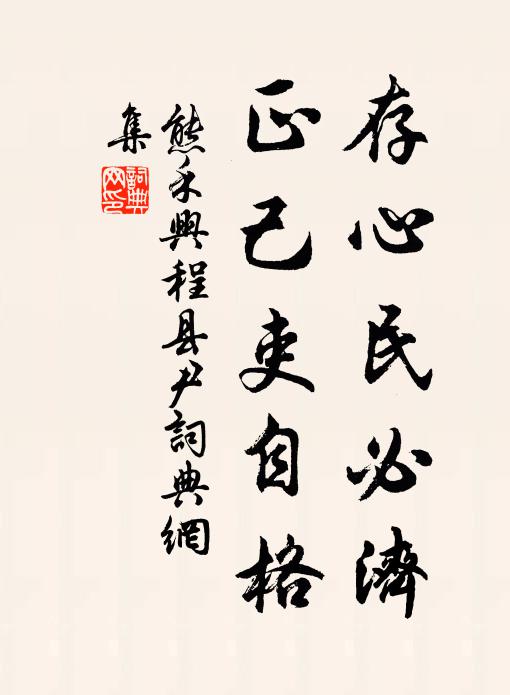 存心民必濟
正己吏自格
熊禾與程县尹詞典網
集
詞典
网印